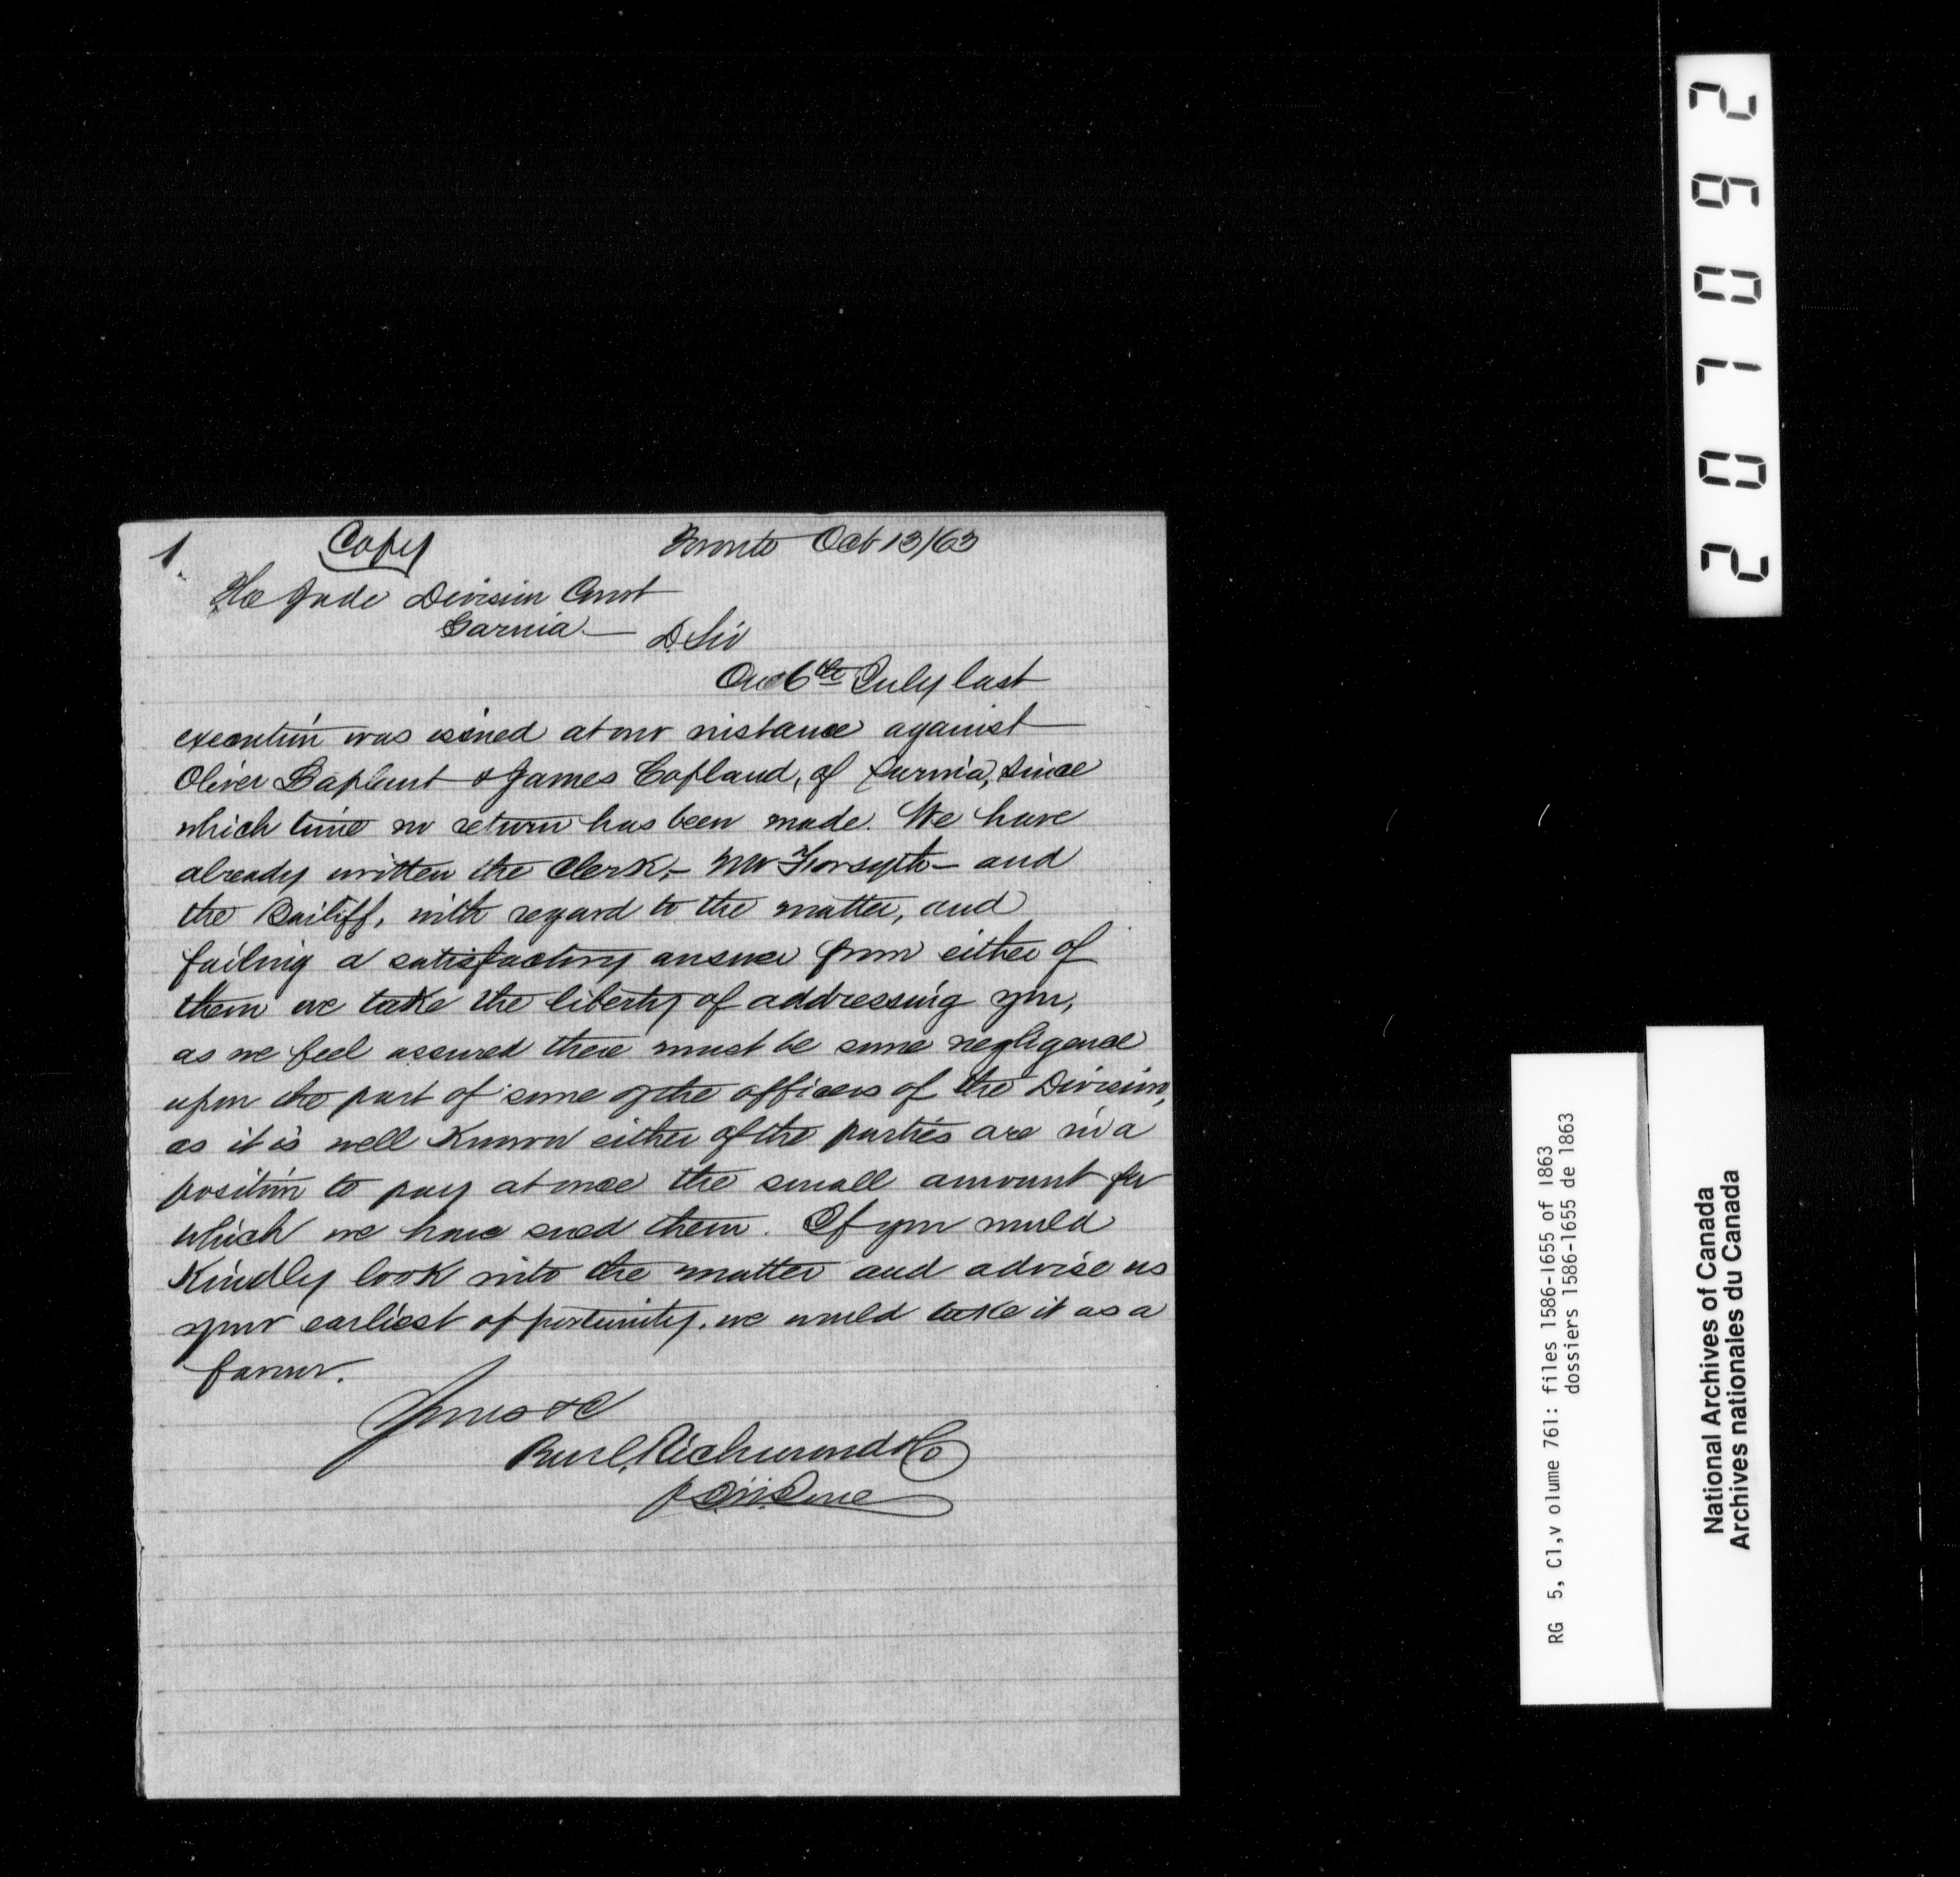 1.
Copy
Toronto Oct 13/63
The Jude Division Court
Sarnia — D. Sir
On 6th July last
execution was issued at our instance against
Oliver Laplant & James Copland, of Sarnia, since
which time no return has been made. We have
already written the Clerk, – Mr Forsyth – and
the Bailiff, with regard to the matter, and
failing a satisfactory answer from either of
them we take the liberty of addressing you,
as we feel assured there must be some negligence
upon the part of some of the officers of the Division,
as it is well known either of the parties are in a
position to pay at once the small amount for
which we have sued them. If you would
Kindly look into the matter and advise us
your earliest opportunity, we would take it as a
favour.
Yours &c
Richmond & Co
2 0 7 0 9 2
RG 5, C1,v olume 761: files 1586-1655 of 1863
dossiers 1586-1655 de 1863
National Archives of Canada
Archives nationales du Canada